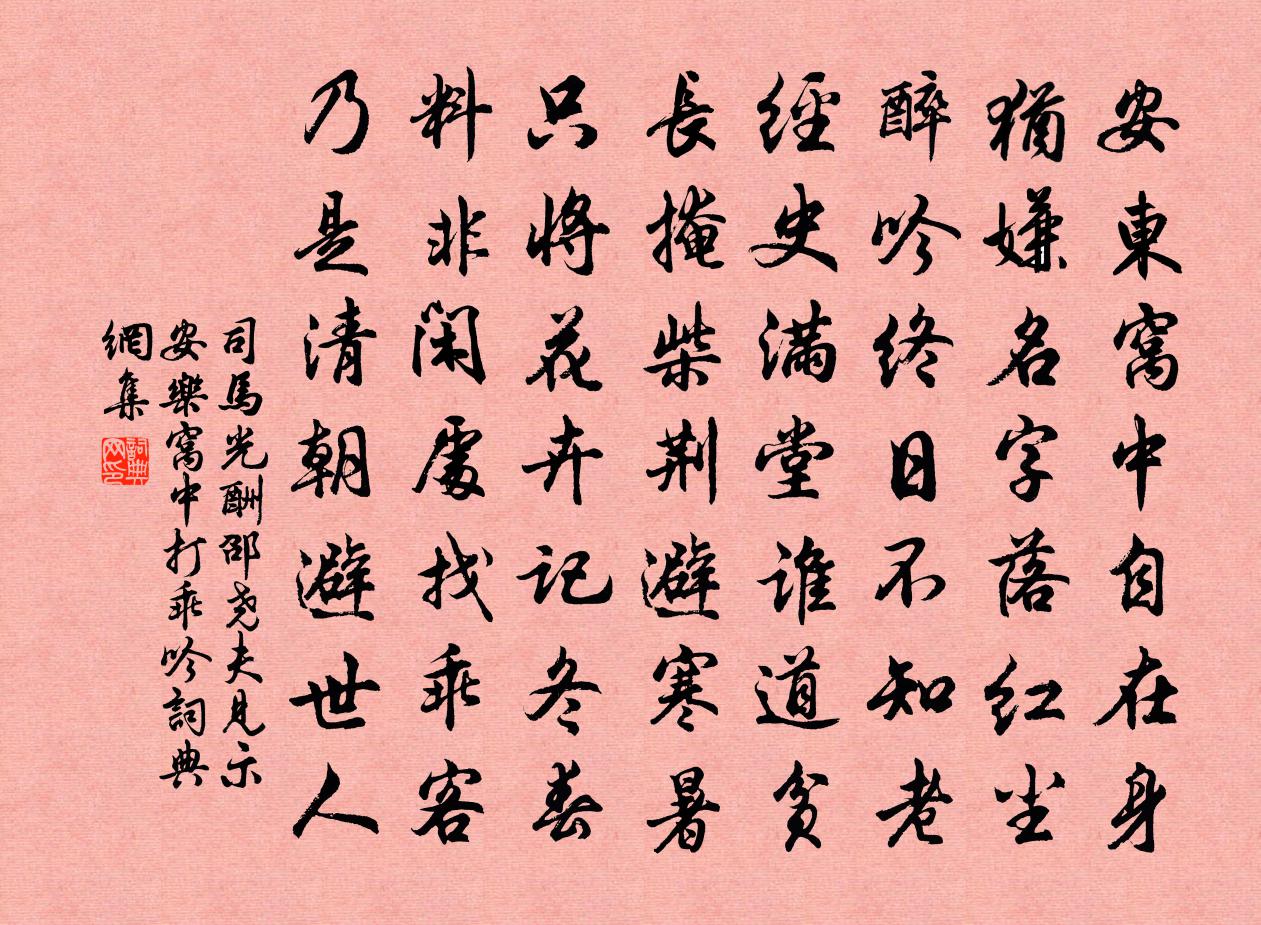 安東窩中自在身
猶嫌名字落紅尘
醉吟終日不知老
經史滿堂誰道貧
長掩柴荆避寒暑
只將花卉記冬春
料非閑處找乖客
乃是清朝避世人
司馬光酬邵尧夫見示
安樂窩中打乖吟詞典
網集
詞典
网印